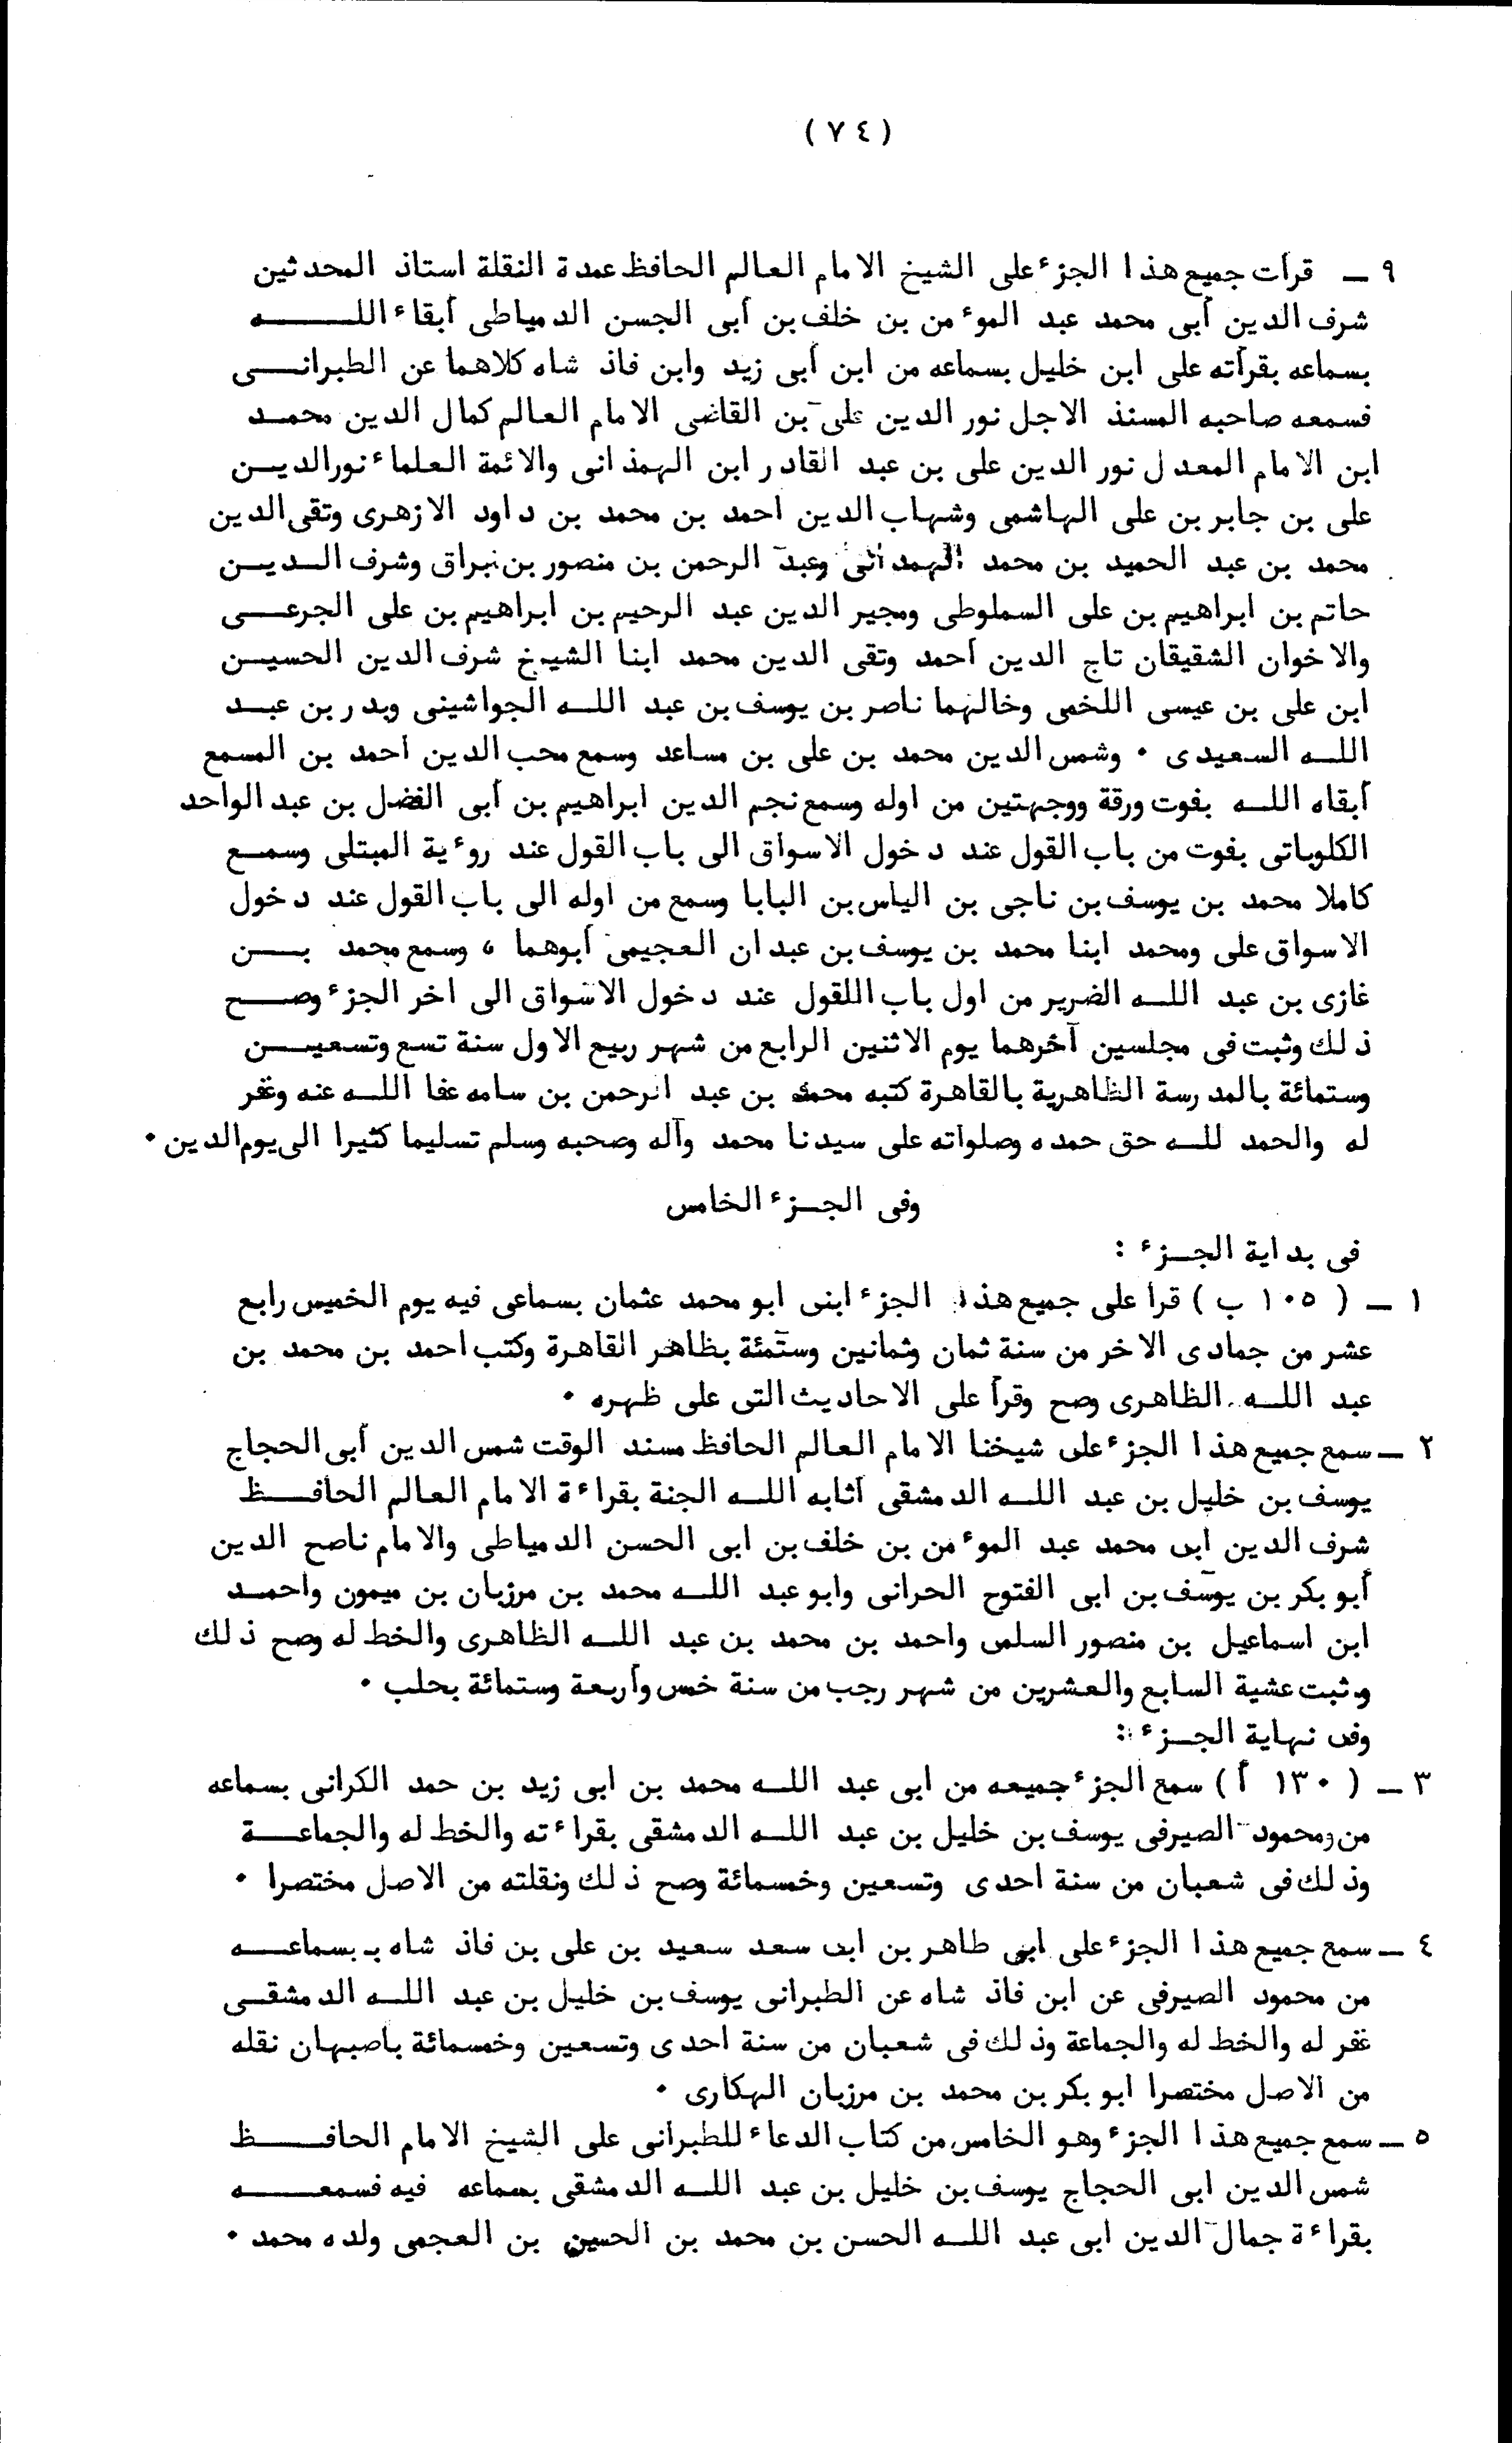 ( ٧٤ )
٩ ــ قرأت جميع هذا الجزء على الشيخ الامام العالم الحافظ عمدة النقلة استاذ المحدثين
شرف الدين أبى محمد عبد الموءمن بن خلف بن أبى الجسن الدمياطى أبقاء اللـــــه
بسماعه بقرأته على ابن خليل بسماعه من ابن أبى زيد وابن فاذ شاه كلاهما عن الطبرانــى
فسمعه صاحبه المسنذ الاجل نور الدين على بن القاضى الامام العالم كمال الدين محمـد
ابن الامام المعدل نور الدين على بن عبد القادر ابن الهمذانى والائمة العلماء نورالديـن
على بن جابر بن على الهاشمى وشهاب الدين احمد بن محمد بن داود الازهرى وتقى الدين
محمد بن عبد الحميد بن محمد الهمدانى وعبد الرحمن بن منصور بن براق وشرف الـديـن
حاتم بن ابراهيم بن على السملوطى ومجير الدين عبد الرحيم بن ابراهيم بن على الجرعــى
والاخوان الشقيقان تاج الدين أحمد وتقى الدين محمد ابنا الشيخ شرف الدين الحسيـن
ابن على بن عيسى اللخمى وخالهما ناصر بن يوسف بن عبد اللـه الجواشينى وبدر بن عبـد
اللـه السعيدى ٠ وشمس الدين محمد بن على بن مساعد وسمع محب الدين احمد بن المسمع
أبقاه اللـه بفوت ورقة ووجهتين من اوله وسمع نجم الدين ابراهيم بن أبى الفضل بن عبد الواحد
الكلوباتى بفوت من باب القول عند دخول الاسواق الى باب القول عند روءية المبتلى وسمـع
كاملا محمد بن يوسف بن ناجى بن الياس بن البابا وسمع من اوله الى باب القول عند دخول
الاسواق على ومحمد ابنا محمد بن يوسف بن عبدان العجيمى أبوهما ، وسمع محمد بــن
غازى بن عبد اللـه الضرير من اول باب اللقول عند دخول الاسواق الى اخر الجزء وصـــح
ذلك وثبت فى مجلسين آخرهما يوم الاثنين الرابع من شهر ربيع الاول سنة تسع وتسعيــن
وستمائة بالمدرسة الظاهرية بالقاهرة كتبه محمد بن عبد الرحمن بن سامه عفا اللـه عنه وغفر
له والحمد للـه حق حمده وصلواته على سيدنا محمد وآله وصحبه وسلم تسليما كثيرا الى يوم الدين ٠
وفى الجـزء الخامس
فى بداية الجـزء :
١ ــ ( ١٠٥ ب ) قرا على جميع هذا الجزء ابنى ابو محمد عثمان بسماعى فيه يوم الخميس رابع
عشر من جمادى الاخر من سنة ثمان وثمانين وستمئة بظاهر القاهرة وكتب احمد بن محمد بن
عبد اللـه الظاهرى وصح وقرأ على الاحاديث التى على ظهره ٠
٢ ــ سمع جميع هذا الجزء على شيخنا الامام العالم الحافظ مسند الوقت شمس الدين أبى الحجاج
يوسف بن خليل بن عبد اللـه الدمشقى أثابه اللـه الجنة بقراءة الامام العالم الحافــظ
شرف الدين ابى محمد عبد الموءمن بن خلف بن ابى الحسن الدمياطى والامام ناصح الدين
أبو بكر بن يوسف بن ابى الفتوح الحرانى وابو عبد اللـه محمد بن مرزبان بن ميمون واحمـد
ابن اسماعيل بن منصور السلمى واحمد بن محمد بن عبد اللـه الظاهرى والخط له وصح ذلك
وثبت عشية السابع والعشرين من شهر رجب من سنة خمس وأربعة وستمائة بحلب ٠
وفى نهاية الجـزء :
٣ ــ ( ١٣٠ أ ) سمع الجزء جميعه من ابى عبد اللـه محمد بن ابى زيد بن حمد الكرانى بسماعه
من ومحمود الصيرفى يوسف بن خليل بن عبد اللـه الدمشقى بقراءته والخط له والجماعــة
وذلك فى شعبان من سنة احدى وتسعين وخمسمائة وصح ذلك ونقلته من الاصل مختصرا ٠
٤ ــ سمع جميع هذا الجزء على ابى طاهر بن ابى سعد سعيد بن على بن فاذ شاه بـ بسماعــه
من محمود الصيرفى عن ابن فاذ شاه عن الطبرانى يوسف بن خليل بن عبد اللـه الدمشقـى
غفر له والخط له والجماعة وذلك فى شعبان من سنة احدى وتسعين وخمسمائة باصبهان نقله
من الاصل مختصرا ابو بكر بن محمد بن مرزبان الهكارى ٠
٥ ــ سمع جميع هذا الجزء وهو الخامس من كتاب الدعاء للطبرانى على الشيخ الامام الحافــظ
شمس الدين ابى الحجاج يوسف بن خليل بن عبد اللـه الدمشقى بسماعه فيه فسمعـــه
بقراءة جمال الدين ابى عبد اللـه الحسن بن محمد بن الحسين بن العجمى ولده محمد ٠